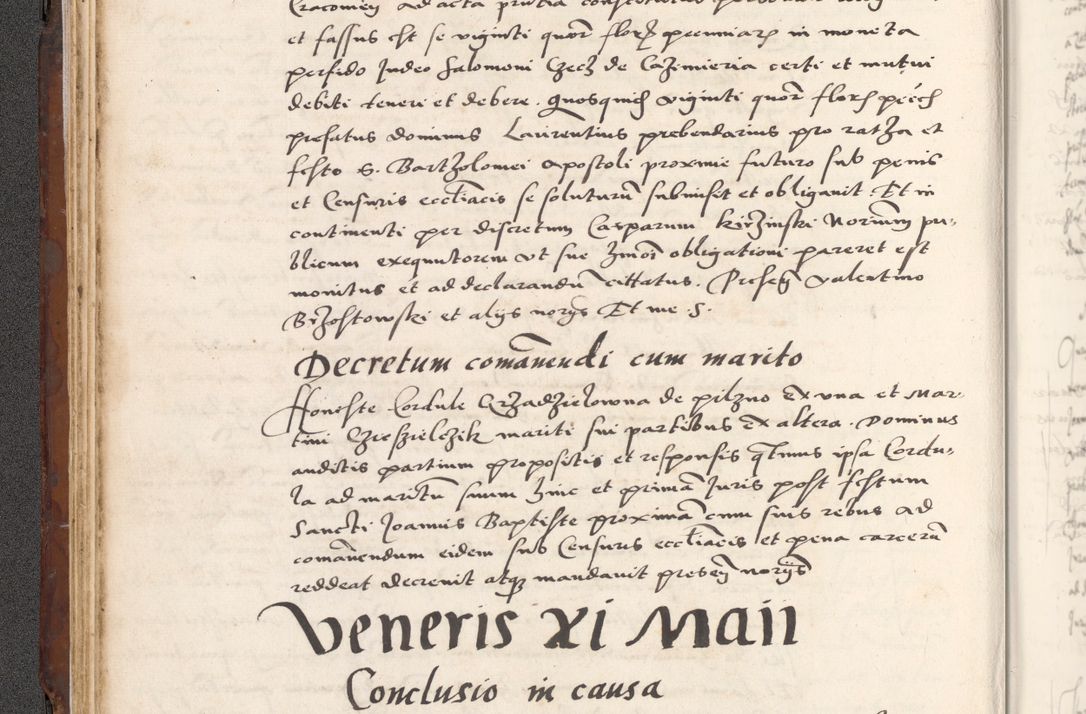 Cracovien ad acta
et fassus est se viginti quor flor pecuniar in moneta
perfido Judeo Salomoni Czech de Cazimieria certi et mutui
debiti teneri et debere. Quosquid viginti quor flor pecc
prefatus dominus Laurentius prebendarius pro ratha et
festo S. Bartholomei apostoli proxime futuro sub penis
et Censuris eccliacis se soluturu submisit et obligavit. Et in
continenti per discretum Casparum Kirzinski Norium pu-
blicum exequutorem ut sue hmoi obligationi pareret est
monitus et ad declarandu citatus. Presen Valentino
Brzostowski et alijs norijs Et me. S.
Decretum comanendi cum marito
Honeste Cordule Grzadzielowna de pilzno Ex una et Mar-
tini Czieszielczik mariti sui partibus Ex altera. Dominus
auditis partium propositis et responsis qtenus ipsa Cordu-
la ad maritu suum hinc et prima Juris post festum
Sancti Joannis Baptiste proxima cum suis rebus ad
comanendum eidem sub Censuris eccliacis et pena carceru
reddeat decrevit atq mandavit presen norijs
Veneris XI Maii
Conclusio in causa